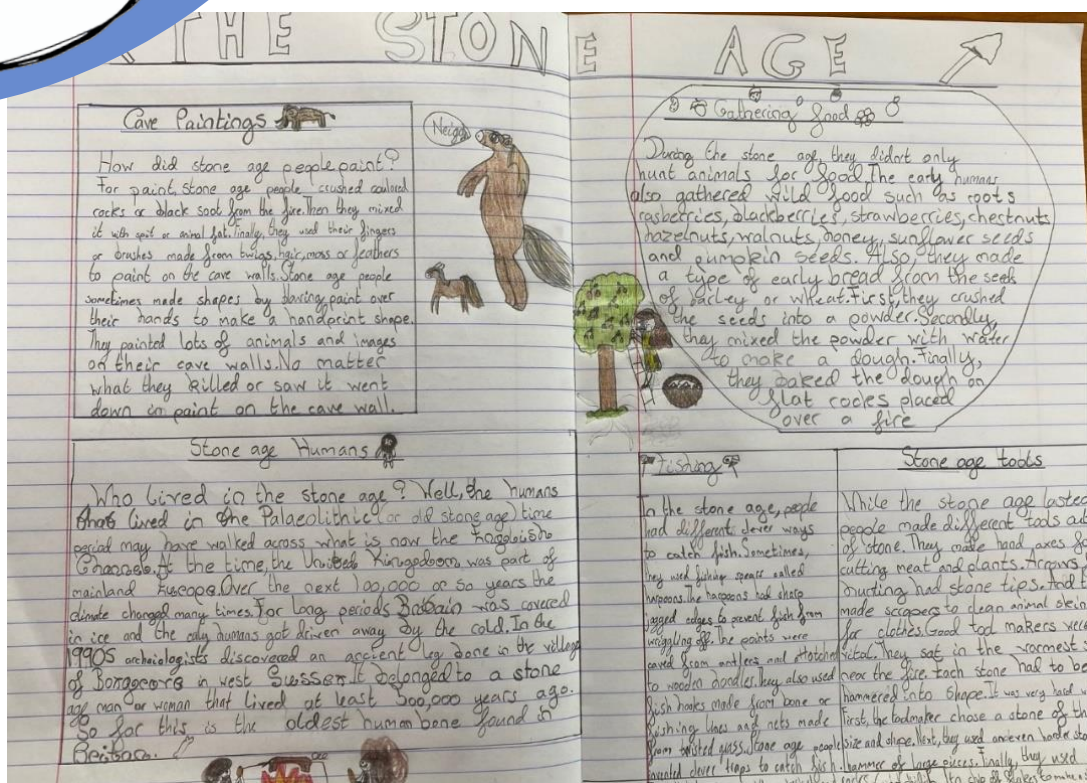 THE STONE AGE
Cave Paintings
How did stone age people paint?
For paint, stone age people crushed coulored
rocks or black soot from the fire. Then they mixed
it with spit or animal fat. Finally, they used their fingers
or brushes made from twigs, hair, moss or feathers
to paint on the cave walls. Stone age people
sometimes made shapes by blowing paint over
their hands to make a handprint shape.
They painted lots of animals and images
on their cave walls. No matter
what they killed or saw it went
down in paint on the cave wall.
Neigh
Gathering food
During the stone age, they didn't only
hunt animals for food. The early humans
also gathered wild food such as roots
rasberries, blackberries, strawberries, chestnuts
hazelnuts, walnuts, honey, sunflower seeds
and pumpkin seeds. Also, they made
a type of early bread from the seeds
of barley or wheat. First, they crushed
the seeds into a powder. Secondly,
they mixed the powder with water
to make a dough. Finally,
they baked the dough on
flat rocks placed
over a fire
Stone age Humans
Who lived in the stone age? Well, the humans
that lived in the Palaeolithic (or old stone age) time
period may have walked across what is now the
Channel. At the time, the United was part of
mainland Europe. Over the next 100,000 or so years the
climate changed many times. For long periods was covered
in ice and the only humans got driven away by the cold. In the
1990s archaiologists discovered an ancient leg bone in the village
of in west It belonged to a stone
age man or woman that lived at least 500,000 years ago.
So far this is the oldest human bone found in
Britain.
Fishing
In the stone age, people
had different clever ways
to catch fish. Sometimes,
they used fishing spears called
harpoons. The harpoons had sharp
jagged edges to prevent fish from
wriggling off. The points were
caved from antlers and
to wooden handles. They also used
fish hooks made from bone or
fishing lines and nets made
from twisted grass. Stone age people
invented clever traps to catch fish.
Stone age tools
While the stone age lasted
people made different tools
of stone. They made hand axes
cutting meat and plants. Arrows
hunting had stone tips. And
made scrapers to clean animal
for clothes. Good tool makers were
vital. They sat in the warmest
near the fire. Each stone had to be
hammered into shape. It was very hard
First, the toolmaker chose a stone of the
size and shape. Next, they used an even harder
hammer of large pieces. Finally, they used